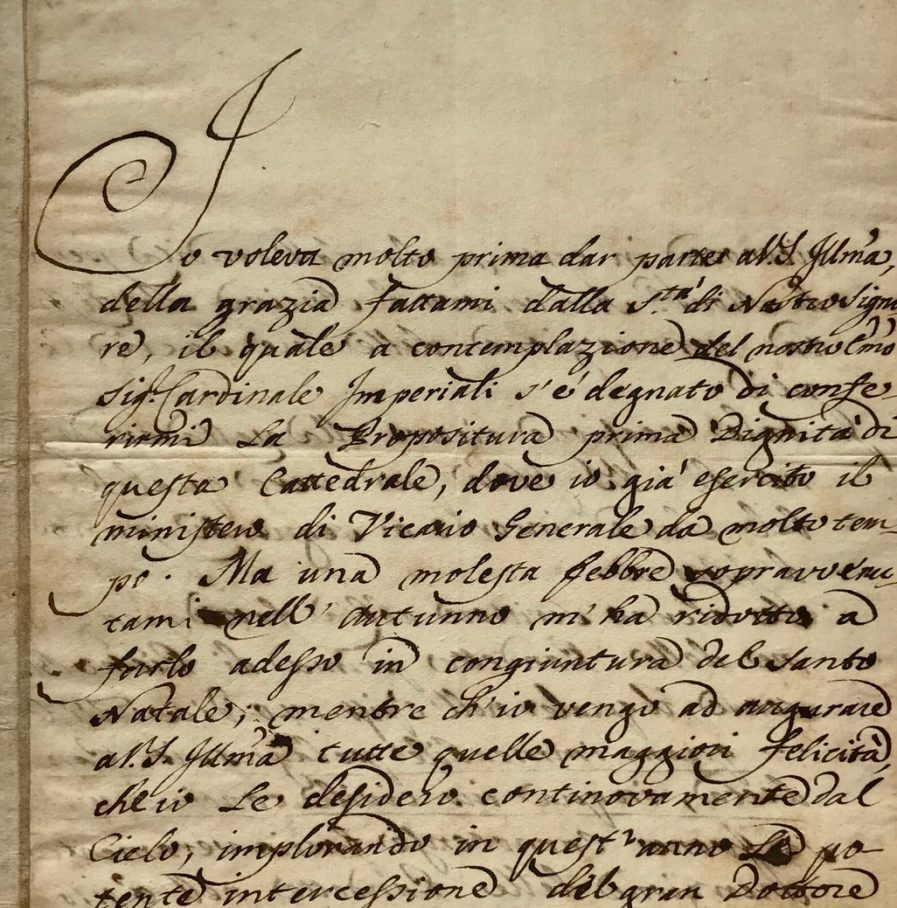 Io voleva molto prima dar parte a V. S. Jllma,
della grazia fattami dalla S.tà di Nostro Signo
re, il quale a contemplazione del nostro Emo
Sig. Cardinale Imperiali s'é degnato di confe-
rirmi la Propositura prima Dignità di
questa Cattedrale, dove io già esercito il
ministero di Vicario Generale da molto tem-
po. Ma una molesta febbre sopravvenu-
tami nell' Autunno m'ha ridotto a
farlo adesso in congiuntura del Santo
Natale; mentre ch'io vengo ad augurare
a V. S. Jllma tutte quelle maggiori felicità,
che io Le desidero continovamente dal
Cielo, implorando in quest'anno La po-
tente intercessione del gran Dottore